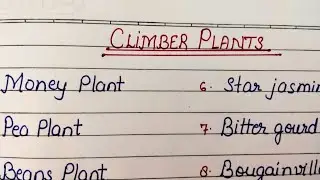 CLIMBER PLANTS
Money Plant 6. Star jasmin
Pea Plant 7. Bitter gourd
Beans Plant 8. Bougainville